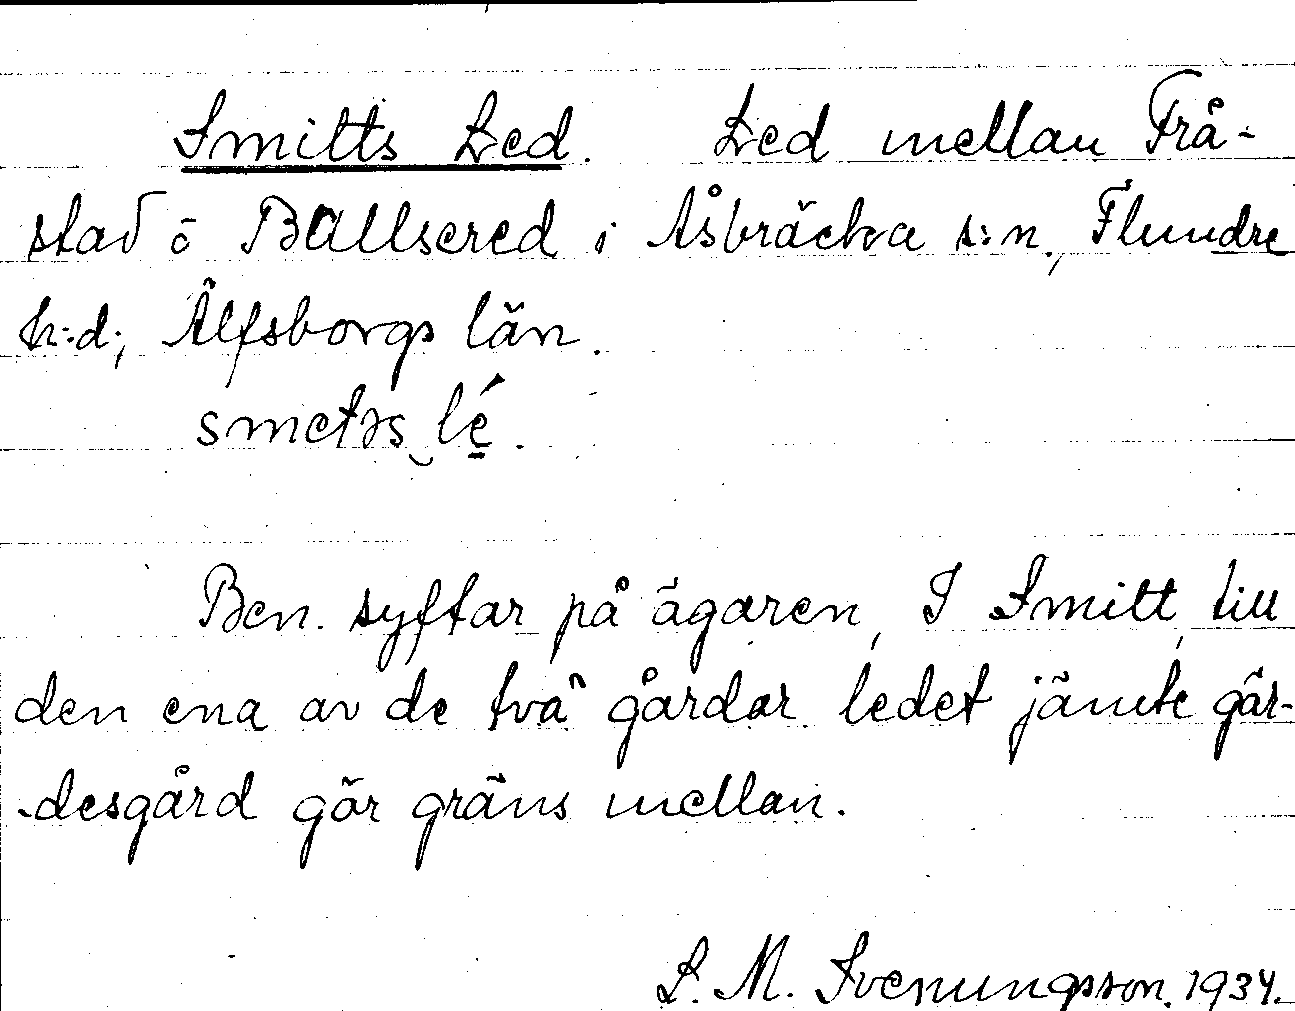 Smitts Led. Led mellan Frå-
stad ō Bällsered i Åsbräcka s:n., Flundre
h:d., Älfsborgs län.
smetəs‿lé.
Ben. syftar på ägaren, J Smitt, till
den ena av de två gårdar ledet jämte gär-
desgård gör gräns mellan.
L. M. Svenungsson. 1934.